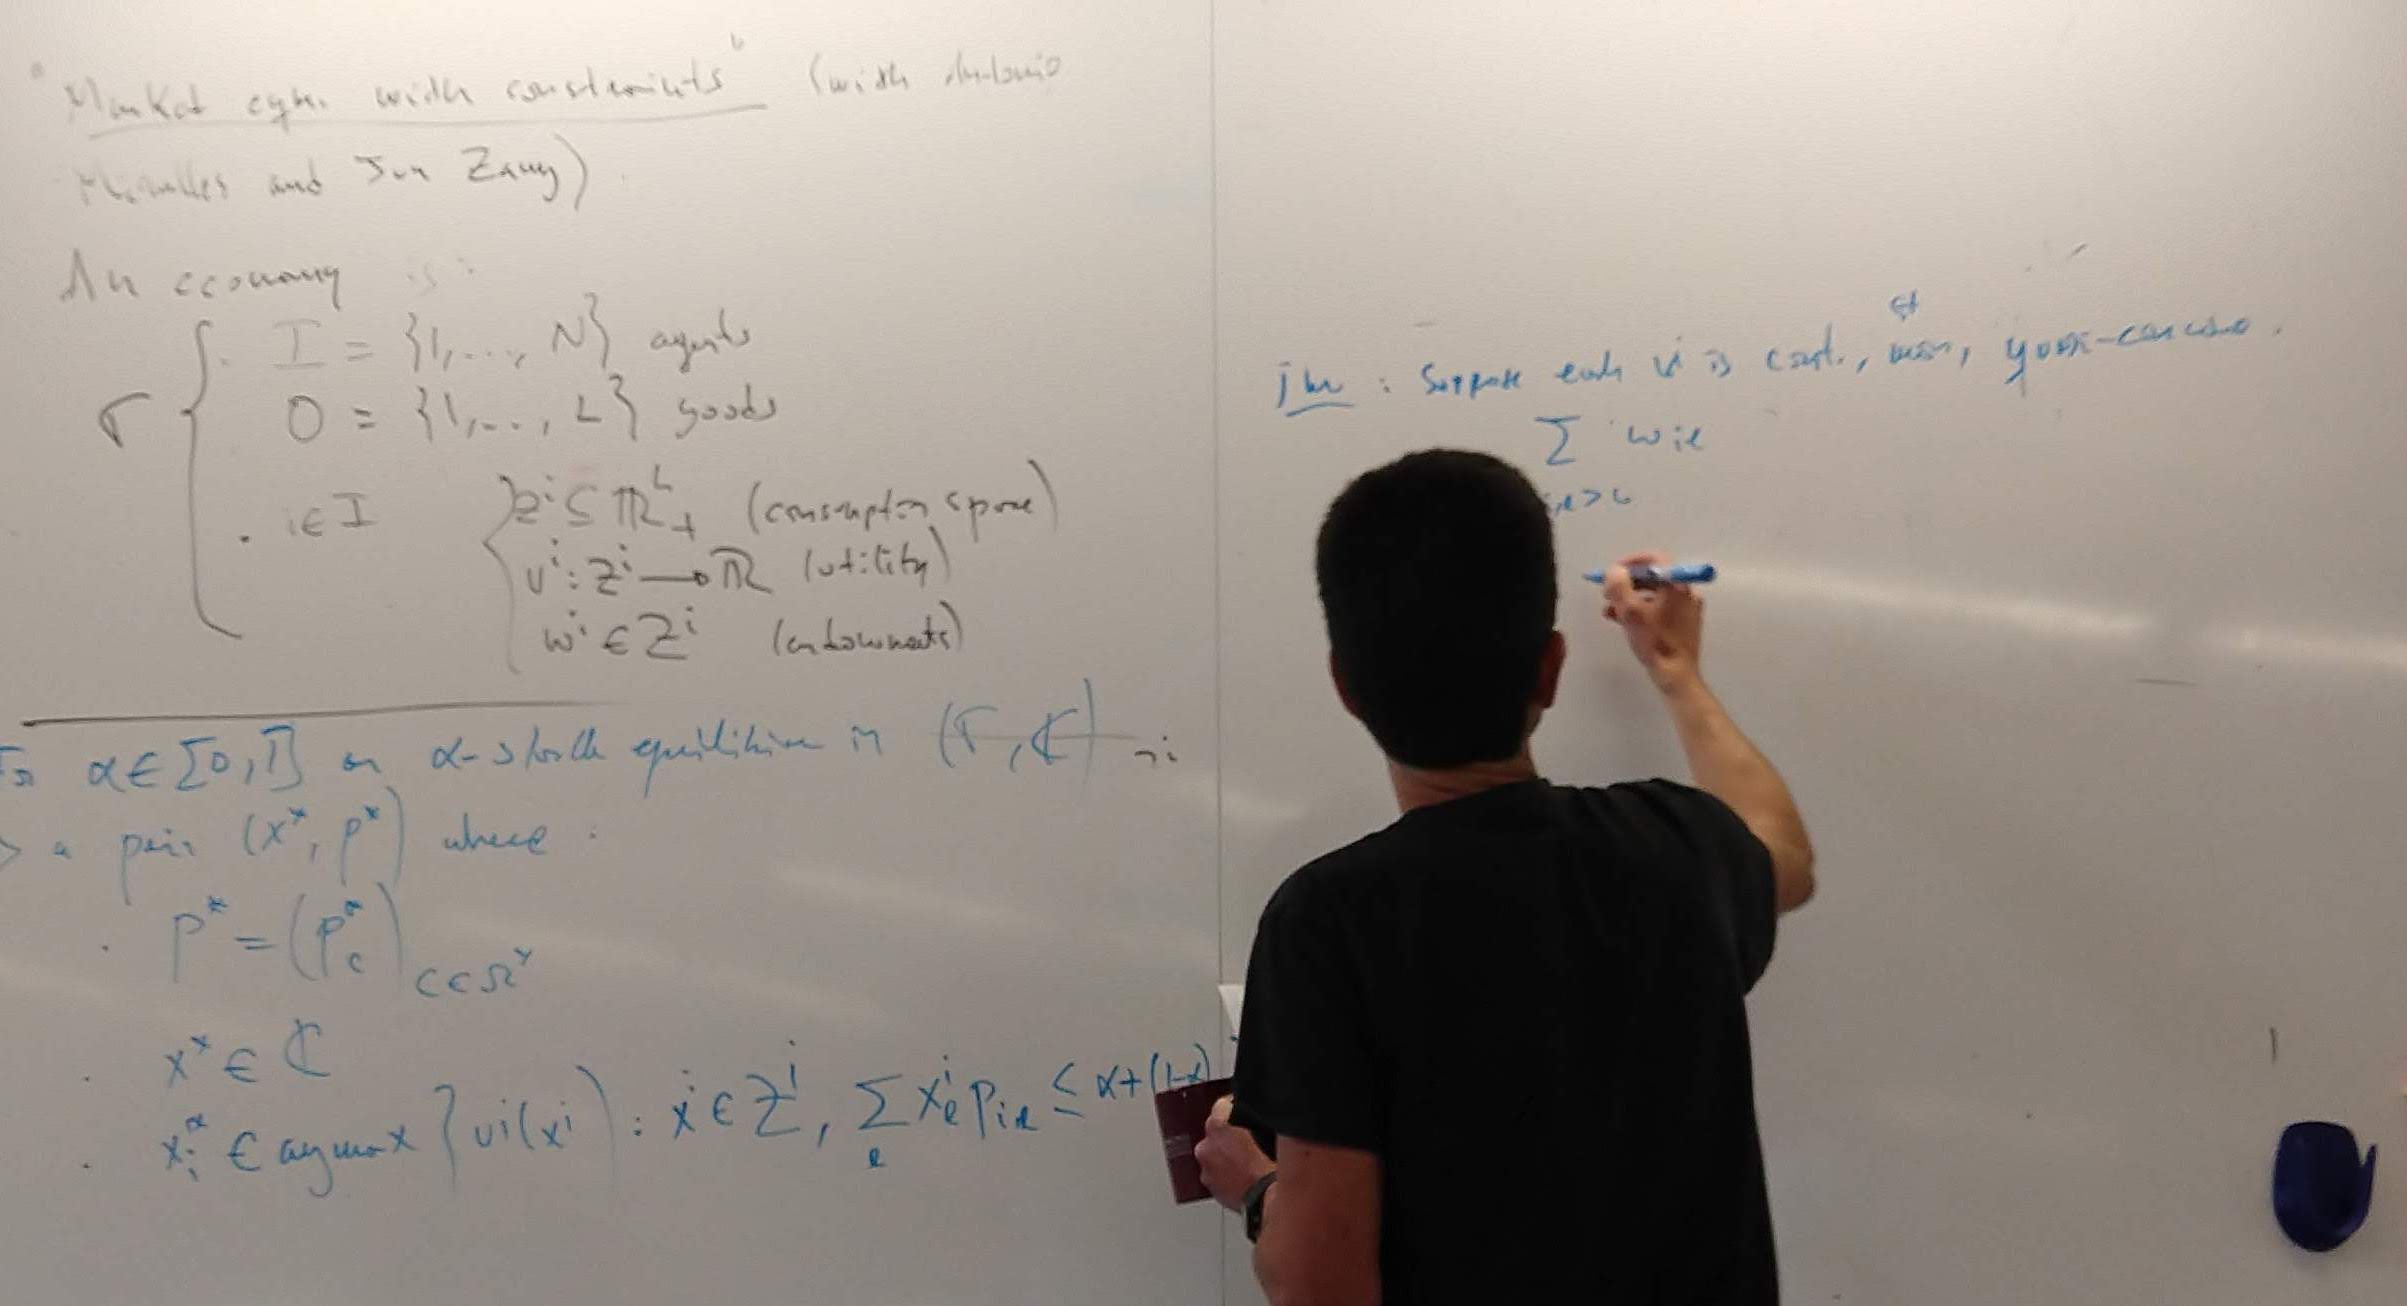 "Market eqm. with constraints" (with Antonio
Miralles and Jun Zhang)
An economy is:
Γ { · I = {1,..., N} agents
O = {1,..., L} goods
· i ∈ I { Zⁱ ⊆ ℝᴸ₊ (consumption space)
uⁱ : Zⁱ → ℝ (utility)
wⁱ ∈ Zⁱ (endowments)
α ∈ [0,1] an α-slack equilibrium in (Γ, ℂ) is
a pair (x*, p*) where :
· p* = (p*_c)_{c∈Ω*}
· x* ∈ ℂ
· xᵢ* ∈ argmax { uⁱ(xⁱ) : xⁱ ∈ Zⁱ, Σ_ℓ xⁱ_ℓ p_{iℓ} ≤ α + (1-α)
Thm : Suppose each uⁱ is cont., mon, quasi-concave.
st
Σ w_{iℓ}
ℓ > 0